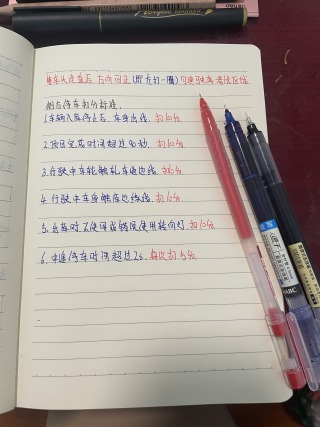 车头走直后 方向回正(即左打一圈)
侧方停车扣分标准.
1.车辆入库停止后, 车身出线. 扣10分
2.项目完成时间超过90秒. 扣10分
3.行驶中车轮触轧车道边线. 扣10分
4.行驶中车身触库位边线. 扣10分
5.出库时不使用或错误使用转向灯. 扣10分
6.中途停车时间超过2s. 每次扣5分